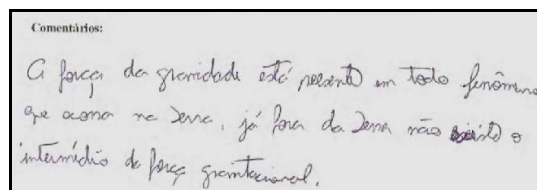 Comentários:
A força da gravidade está presente em todo fenômeno
que ocorra na Terra, já fora da Terra não existe o
intermédio da força gravitacional.